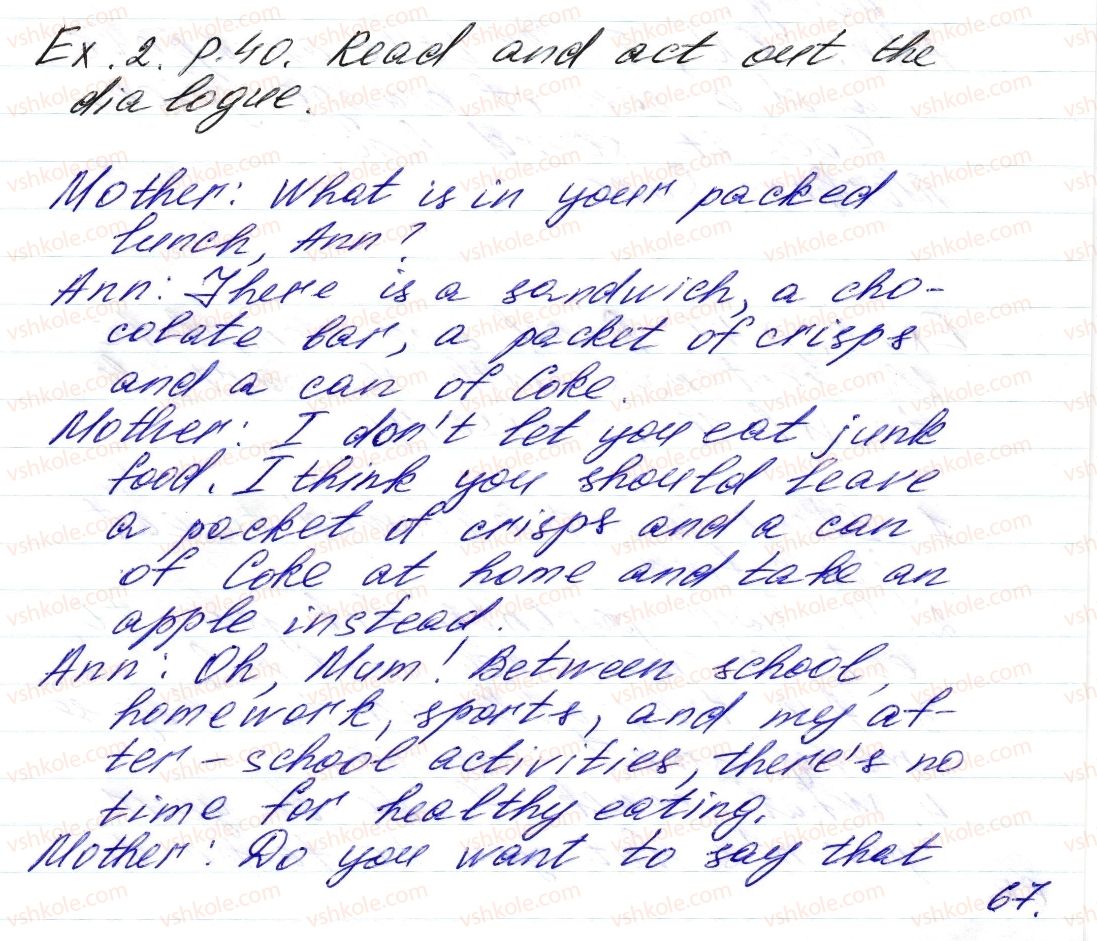 Ex. 2. p. 40. Read and act out the
dialogue.
Mother: What is in your packed
lunch, Ann?
Ann: There is a sandwich, a cho-
colate bar, a packet of crisps
and a can of Coke.
Mother: I don't let you eat junk
food. I think you should leave
a packet of crisps and a can
of Coke at home and take an
apple instead.
Ann: Oh, Mum! Between school,
homework, sports, and my af-
ter-school activities, there's no
time for healthy eating.
Mother: Do you want to say that
67.
vshkole.com